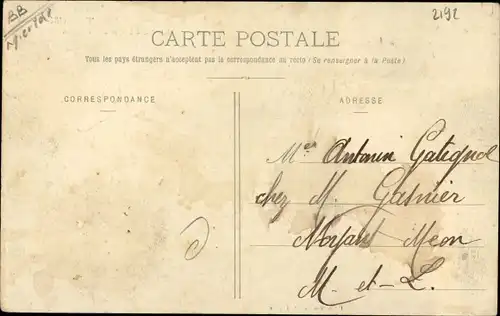 BB
2192
CARTE POSTALE
Tous les pays étrangers n'acceptent pas la correspondance au recto (Se renseigner à la Poste)
CORRESPONDANCE
ADRESSE
Antonin Gatignol
chez M. Gasnier
Noyant Meon
M-et-L.